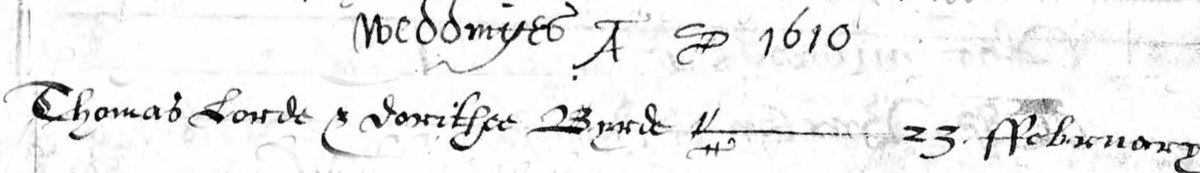 Weddinges A D 1610
Thomas Lorde & dorithee Byrde 23. ffebruary